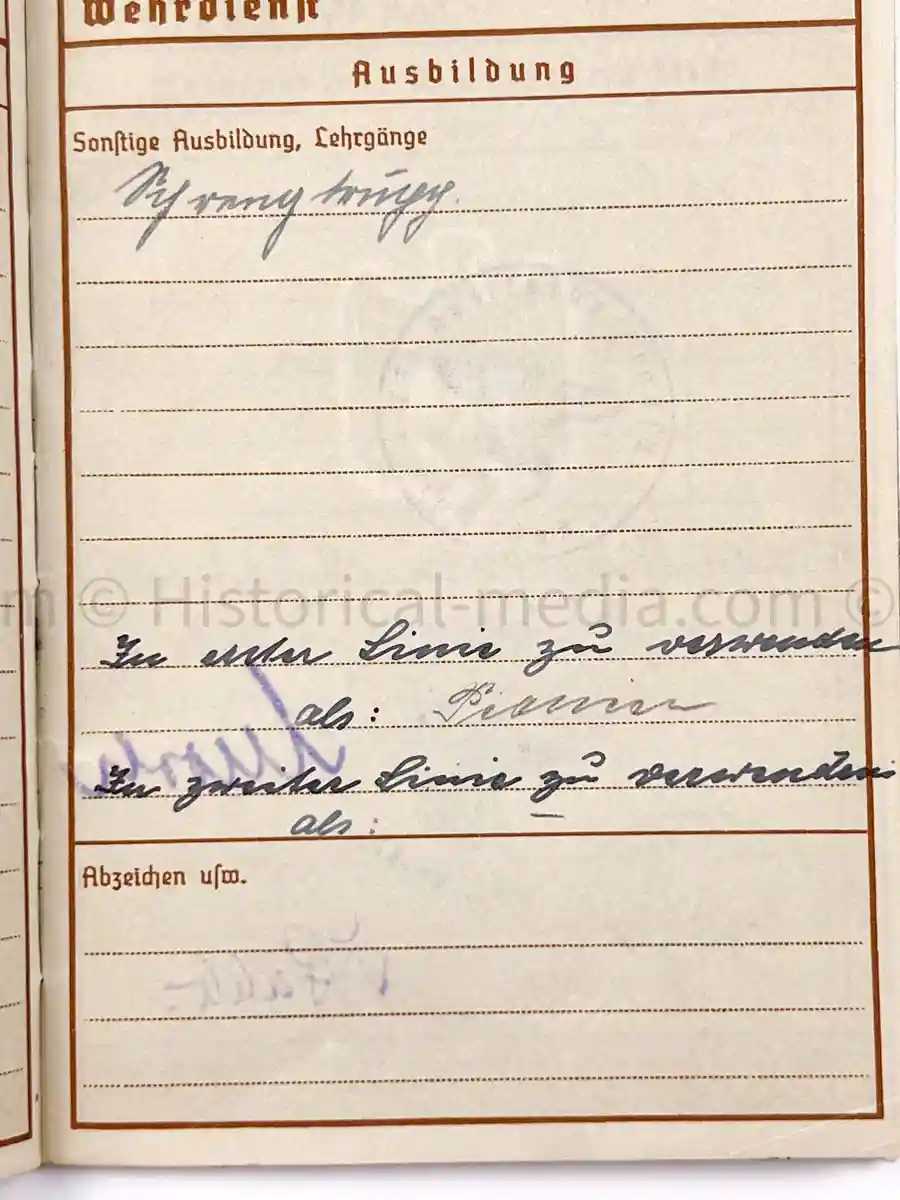 Wehrdienst
Ausbildung
Sonstige Ausbildung, Lehrgänge
Sprengtrupp.
m © Historical-media.com ©
In erster Linie zu verwenden
als: Pionier
In zweiter Linie zu verwenden
als: –
Abzeichen usw.